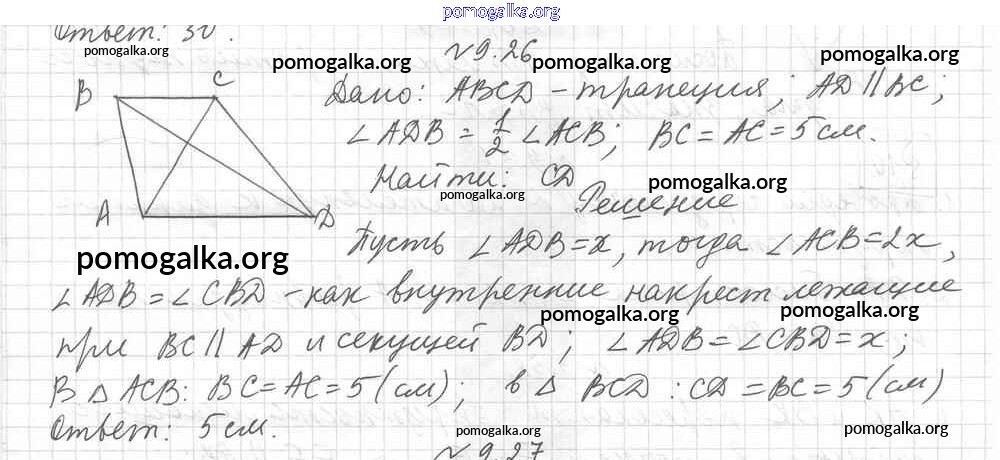 pomogalka.org
Ответ: 30°.
pomogalka.org
№ 9.26
pomogalka.org pomogalka.org pomogalka.org
B C
Дано: ABCD - трапеция; AD || BC;
∠ADB = 1/2 ∠ACB; BC = AC = 5 см.
Найти: CD
pomogalka.org pomogalka.org
Решение
A D
Пусть ∠ADB = x, тогда ∠ACB = 2x,
pomogalka.org
∠ADB = ∠CBD - как внутренние накрест лежащие
pomogalka.org pomogalka.org
при BC || AD и секущей BD; ∠ADB = ∠CBD = x;
В △ ACB: BC = AC = 5 (см); в △ BCD: CD = BC = 5 (см)
Ответ: 5 см.
pomogalka.org pomogalka.org
№ 9.27